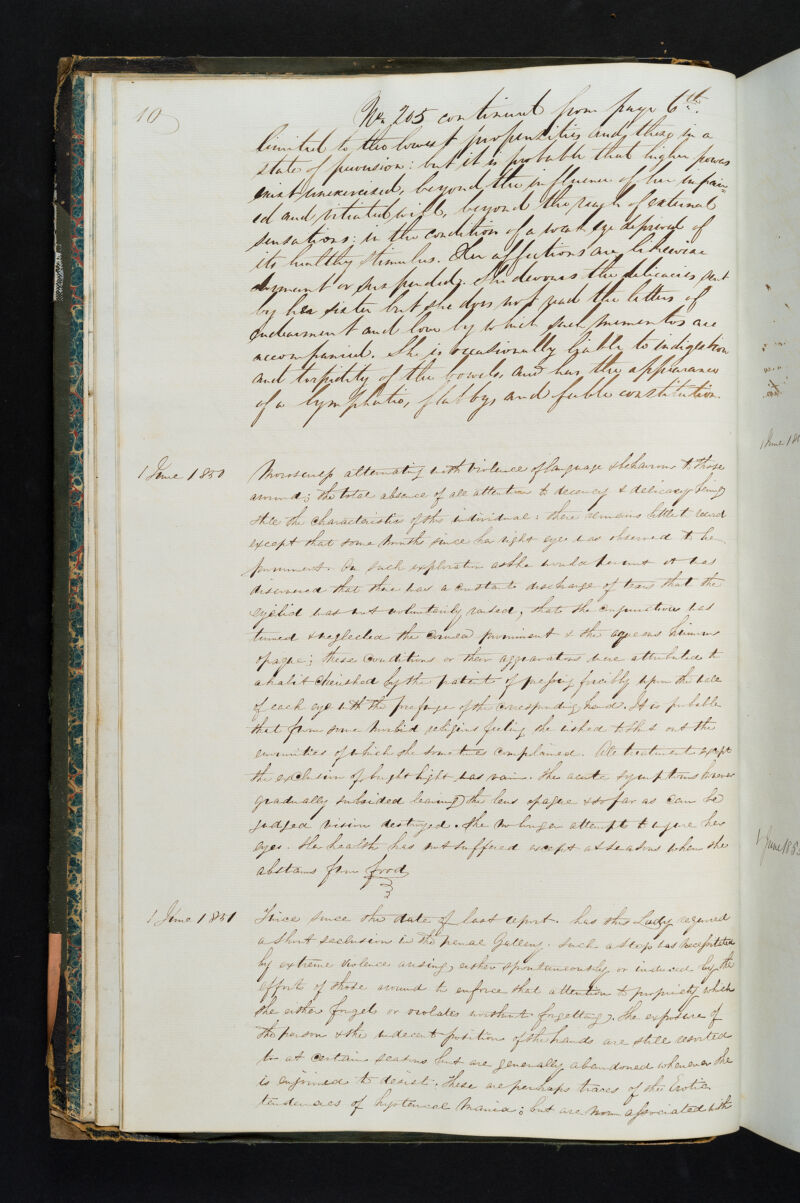 10
No. 205 continued from page 6th.
limited to the lowest propensities and these in a
state of perversion: but it is probable that higher powers
exist unexercised, beyond the influence of her impair-
ed and vitiated will, beyond the reach of external
sensations: in the condition of a weak eye deprived of
its healthy stimulus. Her affections are likewise
dormant or suspended. She devours the delicacies sent
by her sister but she does not read the letters of
endearment and love by which such mementos are
accompanied. She is occasionally liable to indigestion
and torpidity of the bowels, and has the appearance
of a lymphatic, flabby and feeble constitution.
1 June 1850
Moroseness alternating with violence of language & behaviour to those
around; the total absence of all attention to decency & delicacy being
still the characteristics of this individual: there remains little to record
except that some months since her right eye was observed to be
prominent. On such exploration as she would permit it was
discovered that there was a constant discharge of tears that the
eyelid was not voluntarily raised, that the conjunctiva was
tumid & neglected the cornea prominent & the aqueous humour
opaque; these conditions or their aggravation were attributed to
a habit cherished by the patient of pressing forcibly upon the ball
of each eye with the forefinger of the corresponding hand. It is probable
that from some morbid religious feeling she wished to shut out the
enormities of which she sometimes complained. All treatment except
the exclusion of bright light was vain. The acute symptoms however
gradually subsided leaving the lens opaque & so far as can be
judged vision destroyed. She no longer attempts to injure her
eyes. Her health has not suffered except at seasons when she
abstains from food
1 June 1851
Twice since the date of last report has this Lady required
a short seclusion in the penal Gallery. Such a step was necessitated
by extreme violence arising either spontaneously or induced by the
efforts of those around to enforce that attention to propriety which
she either forgets or violates without forgetting. The exposure of
the person & the indecent position of the hands are still resorted
to at certain seasons but are generally abandoned whenever she
is enjoined to desist. These are perhaps traces of the Erotic
tendencies of hysterical Mania: but are now associated with